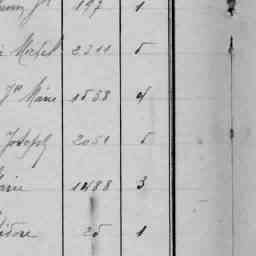 197 1
Michel 2211 5
Jn Marie 1558 4
Joseph 2051 5
Marie 1488 3
Isidore 25 1